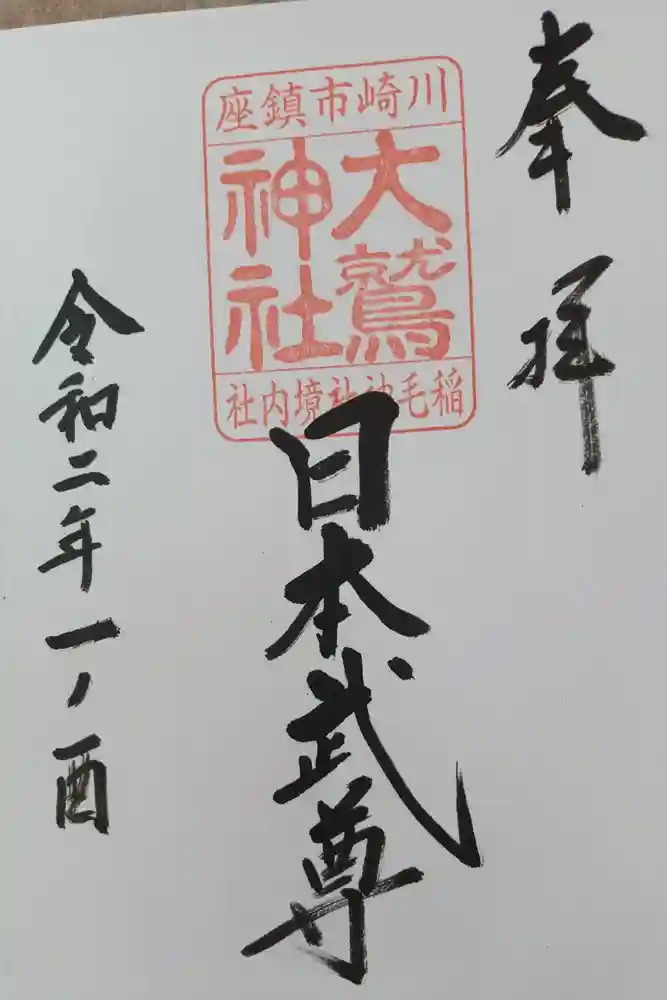 奉拝
川崎市鎮座
大鷲
神社
稲毛神社境内社
日本武尊
令和二年一ノ酉